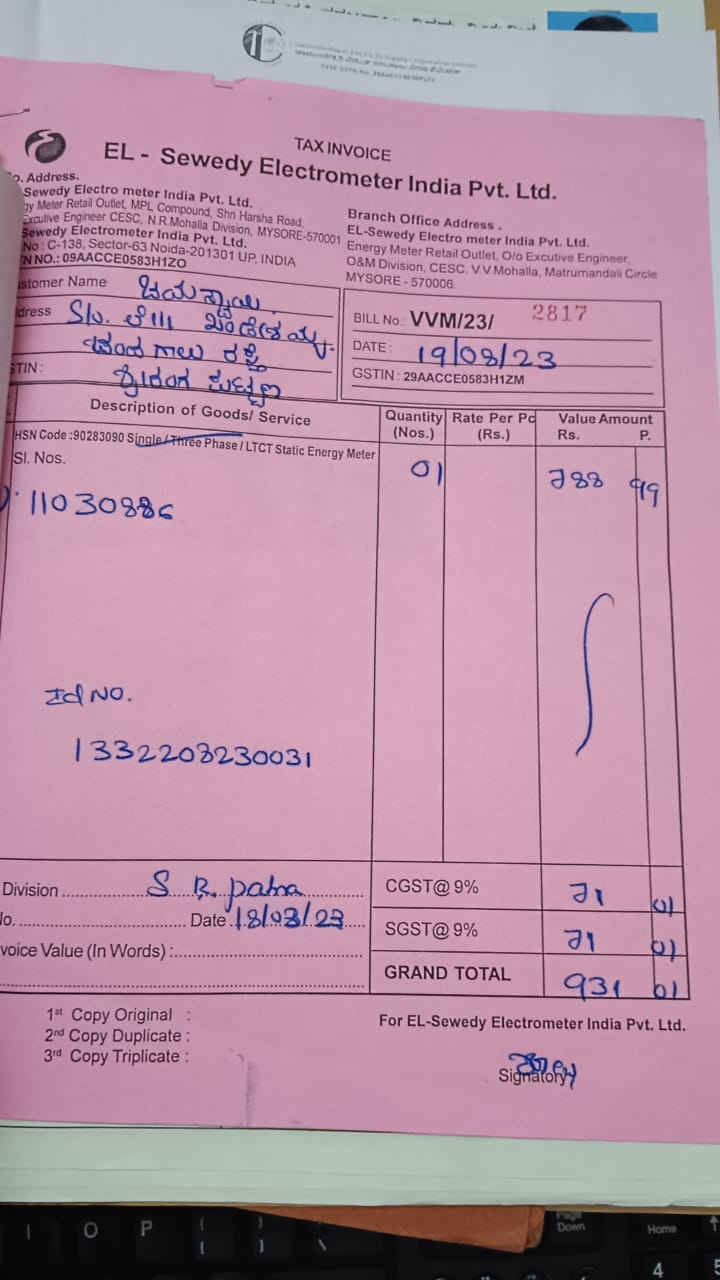 TAX INVOICE
EL - Sewedy Electrometer India Pvt. Ltd.
o. Address.
Sewedy Electro meter India Pvt. Ltd.
gy Meter Retail Outlet, MPL Compound, Shri Harsha Road,
Excutive Engineer CESC, N.R.Mohalla Division, MYSORE-570001
Sewedy Electrometer India Pvt. Ltd.
No : C-138, Sector-63 Noida-201301 UP, INDIA
N NO.: 09AACCE0583H1ZO
Branch Office Address .
EL-Sewedy Electro meter India Pvt. Ltd.
Energy Meter Retail Outlet, O/o Excutive Engineer,
O&M Division, CESC. V.V.Mohalla, Matrumandali Circle
MYSORE - 570006.
stomer Name
dress S/o.
STIN :
BILL No. VVM/23/ 2817
DATE : 19/08/23
GSTIN : 29AACCE0583H1ZM
Description of Goods/ Service
Quantity (Nos.)
Rate Per Pc (Rs.)
Value Amount
Rs. P.
HSN Code :90283090 Single / Three Phase / LTCT Static Energy Meter
Sl. Nos.
01 788 99
11030886
Id NO.
1332208230031
Division S R. patna
CGST@ 9% 71 01
No. Date 18/08/23
SGST@ 9% 71 01
voice Value (In Words) :
GRAND TOTAL 931 01
1st Copy Original :
2nd Copy Duplicate :
3rd Copy Triplicate :
For EL-Sewedy Electrometer India Pvt. Ltd.
Signatory
I O P { [ } ] \ Page Down Home 4